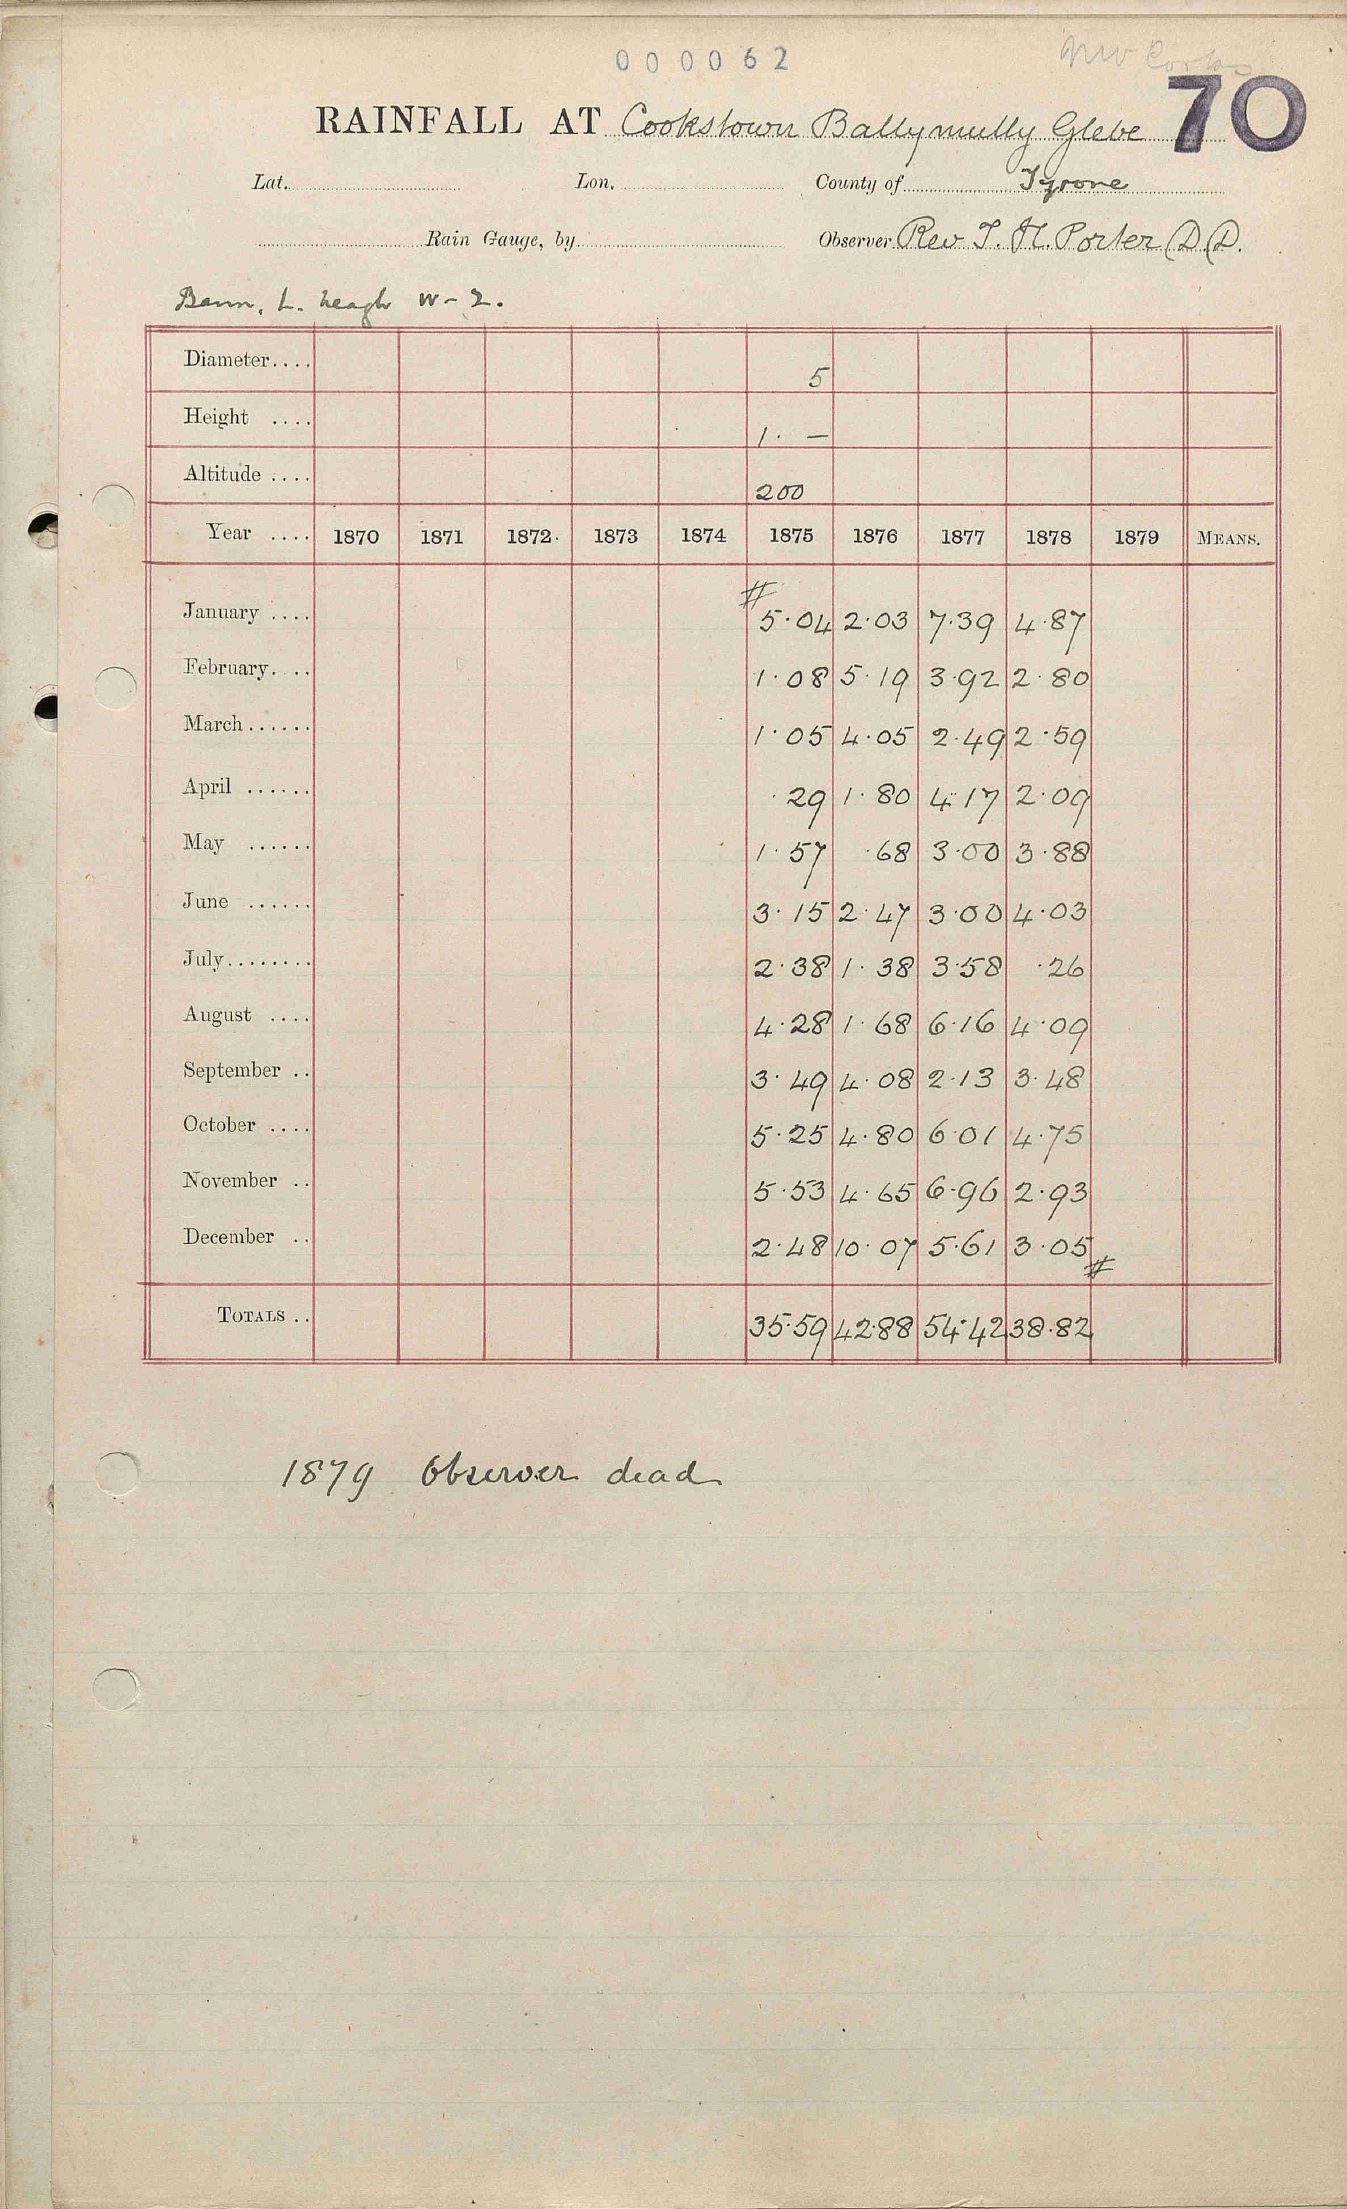 000062
70
RAINFALL AT Cookstown Ballymully Glebe
Lat. Lon. County of Tyrone
Rain Gauge, by Observer Rev T. H. Porter D.D.
Bann, L. Neagh W-2.
Diameter.... 5
Height .... 1. —
Altitude .... 200
Year .... 1870 1871 1872 1873 1874 1875 1876 1877 1878 1879 MEANS.
#
January .... 5.04 2.03 7.39 4.87
February.... 1.08 5.19 3.92 2.80
March...... 1.05 4.05 2.49 2.59
April ...... .29 1.80 4.17 2.09
May ...... 1.57 .68 3.00 3.88
June ...... 3.15 2.47 3.00 4.03
July........ 2.38 1.38 3.58 .26
August .... 4.28 1.68 6.16 4.09
September .. 3.49 4.08 2.13 3.48
October .... 5.25 4.80 6.01 4.75
November .. 5.53 4.65 6.96 2.93
December .. 2.48 10.07 5.61 3.05
#
TOTALS .. 35.59 42.88 54.42 38.82
1879 Observer dead